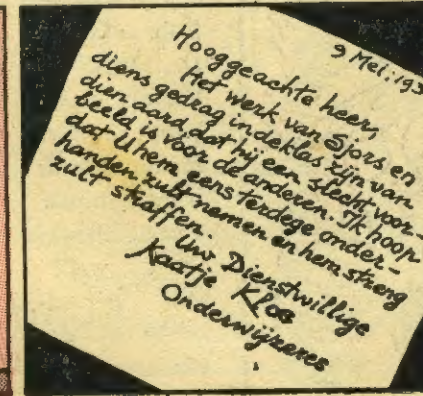 9 Mei: 193
Hooggeachte heer,
Het werk van Sjors en
diens gedrag in de klas zijn van
dien aard, dat hij een slecht voor-
beeld is voor de anderen. Ik hoop
dat U hem eens terdege onder-
handen zult nemen en hem streng
zult straffen.
Uw Dienstwillige
Kaatje Klos
Onderwijzeres